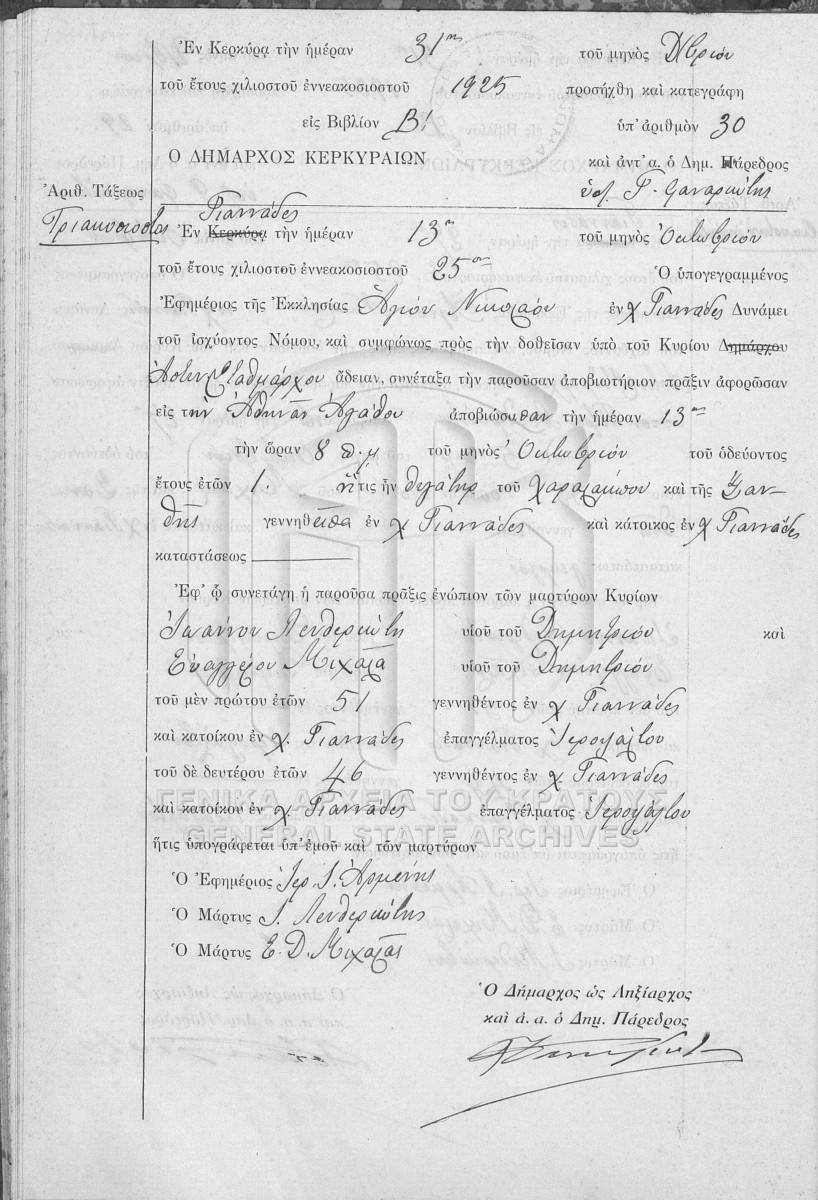 Ἐν Κερκύρᾳ τὴν ἡμέραν 31ην τοῦ μηνὸς Δ/βρίου
τοῦ ἔτους χιλιοστοῦ ἐννεακοσιοστοῦ 1925 προσήχθη καὶ κατεγράφη
εἰς Βιβλίον Β! ὑπ' ἀριθμὸν 30
Ο ΔΗΜΑΡΧΟΣ ΚΕΡΚΥΡΑΙΩΝ καὶ ἀντ' α. ὁ Δημ. Πάρεδρος
Ἀριθ. Τάξεως
Τριακοστὸς
Γιαννάδες
Ἐν Κερκύρᾳ τὴν ἡμέραν 13η τοῦ μηνὸς Ὀκτωβρίου
τοῦ ἔτους χιλιοστοῦ ἐννεακοσιοστοῦ 25ου Ὁ ὑπογεγραμμένος
Ἐφημέριος τῆς Ἐκκλησίας Ἁγίου Νικολάου ἐν χ Γιαννάδες Δυνάμει
τοῦ ἰσχύοντος Νόμου, καὶ συμφώνως πρὸς τὴν δοθεῖσαν ὑπὸ τοῦ Κυρίου Δημάρχου
Ἀστυν. Σταθμάρχου ἄδειαν, συνέταξα τὴν παροῦσαν ἀποβιωτήριον πρᾶξιν ἀφορῶσαν
εἰς τὴν Ἀθηνᾶν Ἀγάθου ἀποβιώσασαν τὴν ἡμέραν 13ην
τὴν ὥραν 8 π.μ τοῦ μηνὸς Ὀκτωβρίου τοῦ ὁδεύοντος
ἔτους ἐτῶν 1. ἥτις ἦν θυγάτηρ τοῦ Χαραλάμπου καὶ τῆς Ξαν-
θῆς γεννηθεῖσα ἐν χ Γιαννάδες καὶ κάτοικος ἐν χ Γιαννάδες
καταστάσεως
Ἐφ' ᾧ συνετάγη ἡ παροῦσα πρᾶξις ἐνώπιον τῶν μαρτύρων Κυρίων
Ἰωάννου Λευθεριώτη υἱοῦ τοῦ Δημητρίου καὶ
Εὐαγγέλου Μιχαλᾶ υἱοῦ τοῦ Δημητρίου
τοῦ μὲν πρώτου ἐτῶν 51 γεννηθέντος ἐν χ Γιαννάδες
καὶ κατοίκου ἐν χ. Γιαννάδες ἐπαγγέλματος Ἱεροψάλτου
τοῦ δὲ δευτέρου ἐτῶν 46 γεννηθέντος ἐν χ. Γιαννάδες
ΓΕΝΙΚΑ ΑΡΧΕΙΑ ΤΟΥ ΚΡΑΤΟΥΣ
καὶ κατοίκου ἐν χ. Γιαννάδες ἐπαγγέλματος Ἱεροψάλτου
GENERAL STATE ARCHIVES
ἥτις ὑπογράφεται ὑπ' ἐμοῦ καὶ τῶν μαρτύρων
Ὁ Ἐφημέριος Ἱερ. Ἰ. Ἀρμένης
Ὁ Μάρτυς Ἰ. Λευθεριώτης
Ὁ Μάρτυς Ε. Δ. Μιχαλᾶς
Ὁ Δήμαρχος ὡς Ληξίαρχος
καὶ ἀ. α. ὁ Δημ. Πάρεδρος